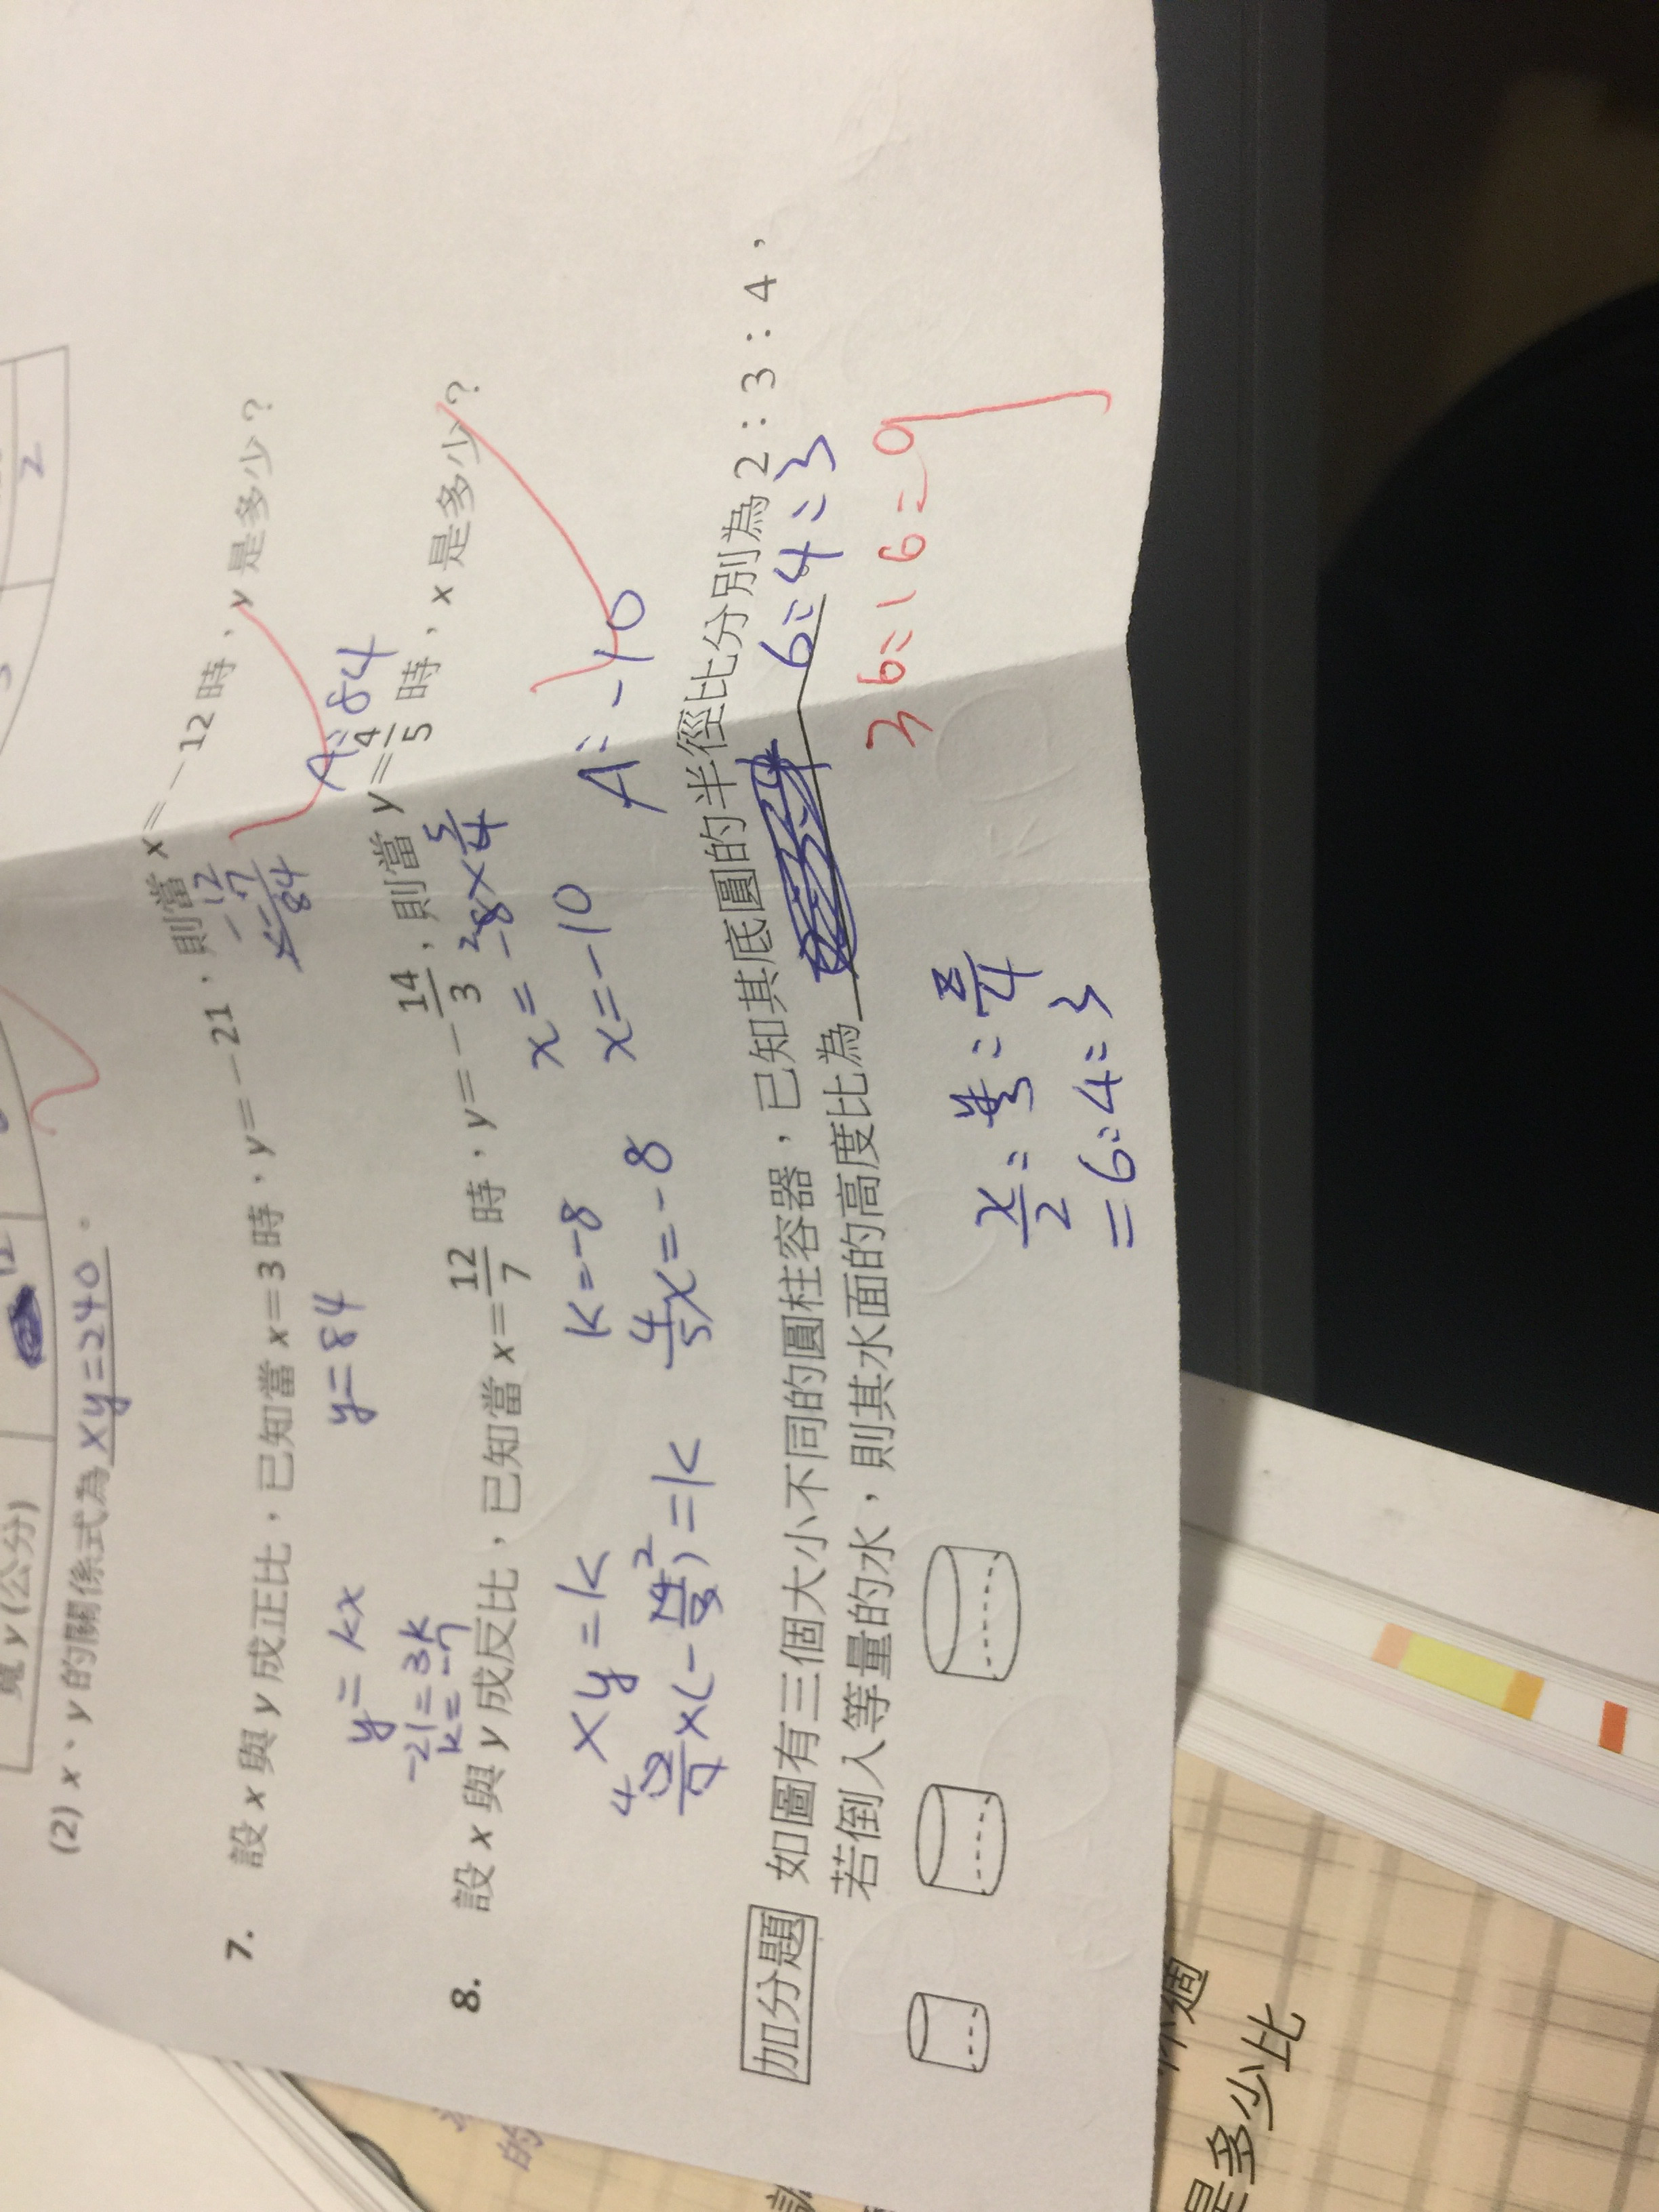 寬 y (公分)
12
2
(2) x、y 的關係式為 xy=240 。
7. 設 x 與 y 成正比，已知當 x=3 時，y=－21，則當 x=－12 時，y 是多少？
y=kx
-21=3k
k=-7
y=84
-12
×-7
84
A:84
8. 設 x 與 y 成反比，已知當 x=12/7 時，y=－14/3，則當 y=4/5 時，x 是多少？
xy=k
k=-8
x=-8×5/4
4
12/7×(-14/3)=k
2
4/5x=-8
x=-10
A:-10
加分題 如圖有三個大小不同的圓柱容器，已知其底圓的半徑比分別為 2：3：4，
若倒入等量的水，則其水面的高度比為 6:4:3
36:16:9
=6:4:3
的
是多少比